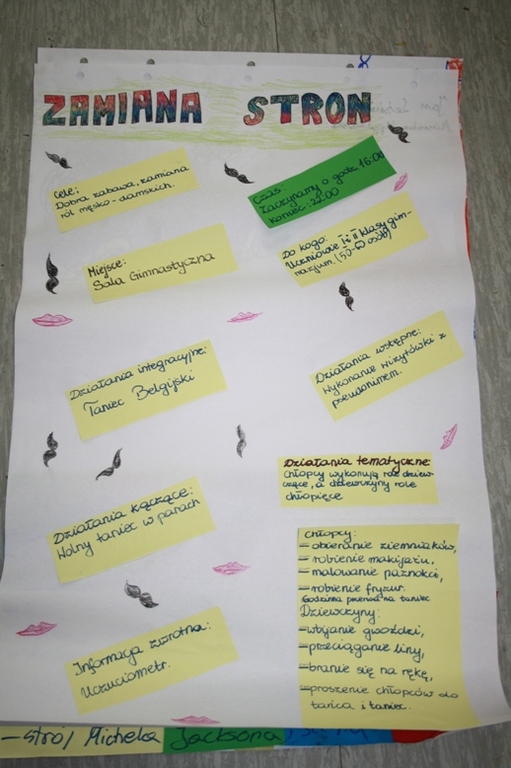 ZAMIANA STRON
Cele:
Dobra zabawa, zamiana
ról męsko-damskich.
Czas:
Zaczynamy o godz. 16:00
koniec: 22:00
Miejsce:
Sala Gimnastyczna
Do kogo:
Uczniowie I i II klasy gim-
nazjum. (50-60 osób)
Działania integracyjne:
Taniec Belgijski
Działania wstępne:
Wykonanie wizytówki z
pseudonimem.
Działania tematyczne:
Chłopcy wykonują role dziew-
częce, a dziewczyny role
chłopięce
Działania łączące:
Wolny taniec w parach
Chłopcy:
-obieranie ziemniaków,
-robienie makijażu,
-malowanie paznokci,
-robienie fryzur.
Godzinna przerwa na taniec
Dziewczyny:
-wbijanie gwoździ,
-przeciąganie liny,
-branie się na rękę,
-proszenie chłopców do
tańca i taniec.
Informacja zwrotna:
Uczuciometr.
-strój Michela Jacksona